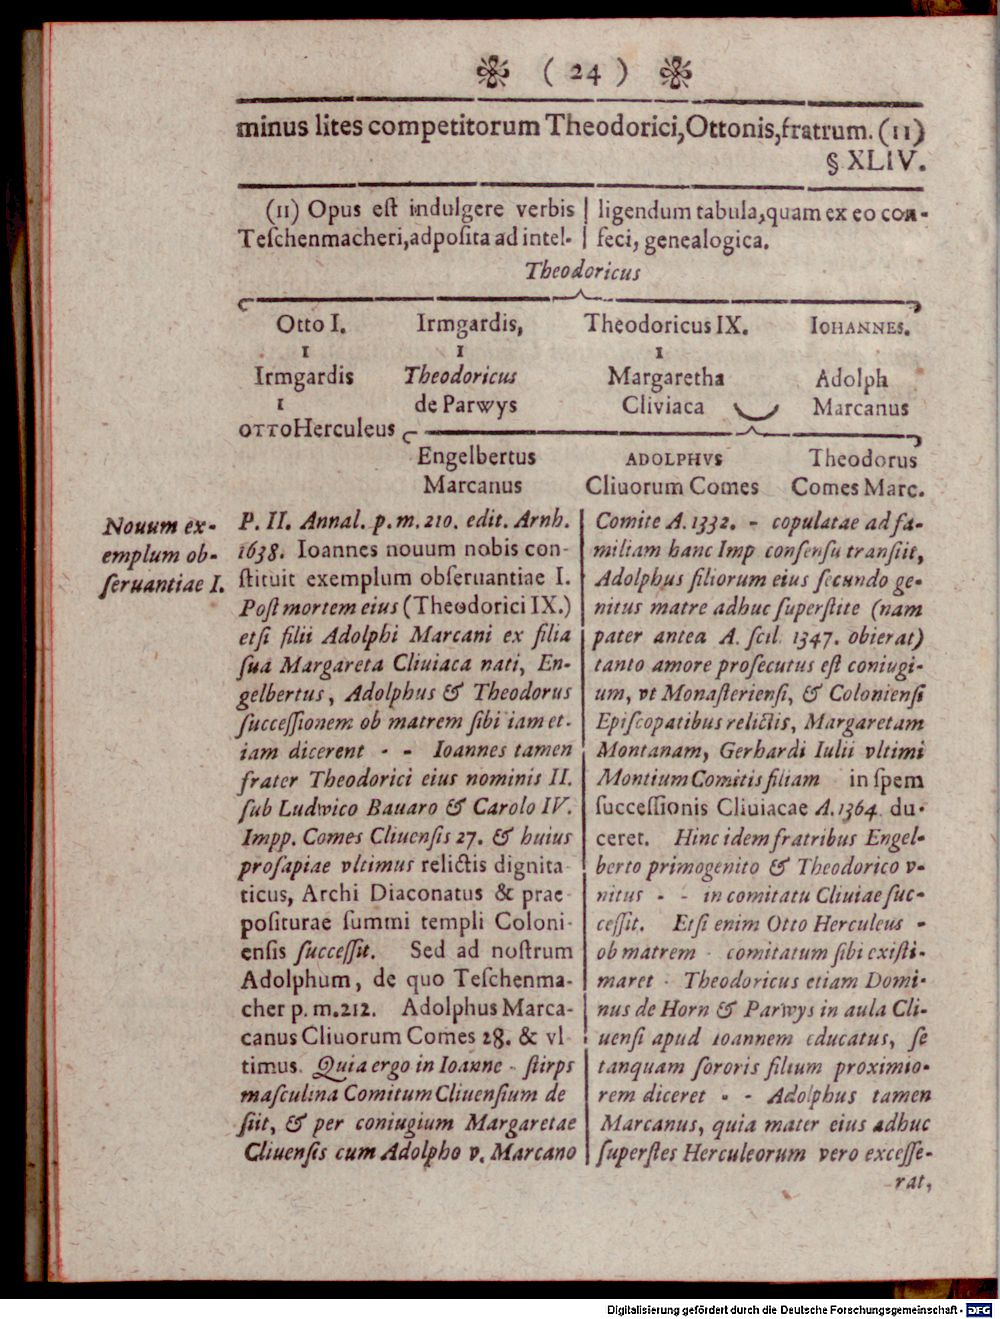 ( 24 )
minus lites competitorum Theodorici, Ottonis, fratrum. (11)
§ XLIV.
(11) Opus eſt indulgere verbis
Teſchenmacheri, adpoſita ad intel-
ligendum tabula, quam ex eo con-
feci, genealogica.
Theodoricus
Otto I. Irmgardis, Theodoricus IX. IOHANNES.
I I I
Irmgardis Theodoricus Margaretha Adolph
I de Parwys Cliviaca Marcanus
OTTO Herculeus
Engelbertus ADOLPHVS Theodorus
Marcanus Cliuorum Comes Comes Marc.
Nouum ex-
emplum ob-
ſeruantiae I.
P. II. Annal. p. m. 210. edit. Arnh.
1638. Ioannes nouum nobis con-
ſtituit exemplum obſeruantiae I.
Poſt mortem eius (Theodorici IX.)
etſi filii Adolphi Marcani ex filia
ſua Margareta Cliuiaca nati, En-
gelbertus, Adolphus & Theodorus
ſucceſſionem ob matrem ſibi iam et-
iam dicerent - - Ioannes tamen
frater Theodorici eius nominis II.
ſub Ludwico Bauaro & Carolo IV.
Impp. Comes Cliuenſis 27. & huius
proſapiae vltimus relictis dignita-
ticus, Archi Diaconatus & prae-
poſiturae ſummi templi Coloni-
enſis ſucceſſit. Sed ad noſtrum
Adolphum, de quo Teſchenma-
cher p. m. 212. Adolphus Marca-
canus Cliuorum Comes 28. & vl
timus. Quia ergo in Ioanne - ſtirps
maſculina Comitum Cliuenſium de
ſiit, & per coniugium Margaretae
Cliuenſis cum Adolpho v. Marcano
Comite A. 1332. - copulatae ad fa-
miliam hanc Imp conſenſu tranſiit,
Adolphus filiorum eius ſecundo ge-
nitus matre adhuc ſuperſtite (nam
pater antea A. ſcil. 1347. obierat)
tanto amore proſecutus eſt coniugi-
um, vt Monaſterienſi, & Colonienſi
Epiſcopatibus relictis, Margaretam
Montanam, Gerhardi Iulii vltimi
Montium Comitis filiam in ſpem
ſucceſſionis Cliuiacae A. 1364. du-
ceret. Hinc idem fratribus Engel-
berto primogenito & Theodorico v-
nitus - - in comitatu Cliuiae ſuc-
ceſſit. Etſi enim Otto Herculeus -
ob matrem - comitatum ſibi exiſti-
maret - Theodoricus etiam Domi-
nus de Horn & Parwys in aula Cli-
uenſi apud Ioannem educatus, ſe
tanquam ſororis filium proximio-
rem diceret - - Adolphus tamen
Marcanus, quia mater eius adhuc
ſuperſtes Herculeorum vero exceſſe-
rat,
Digitalisierung gefördert durch die Deutsche Forschungsgemeinschaft - DFG